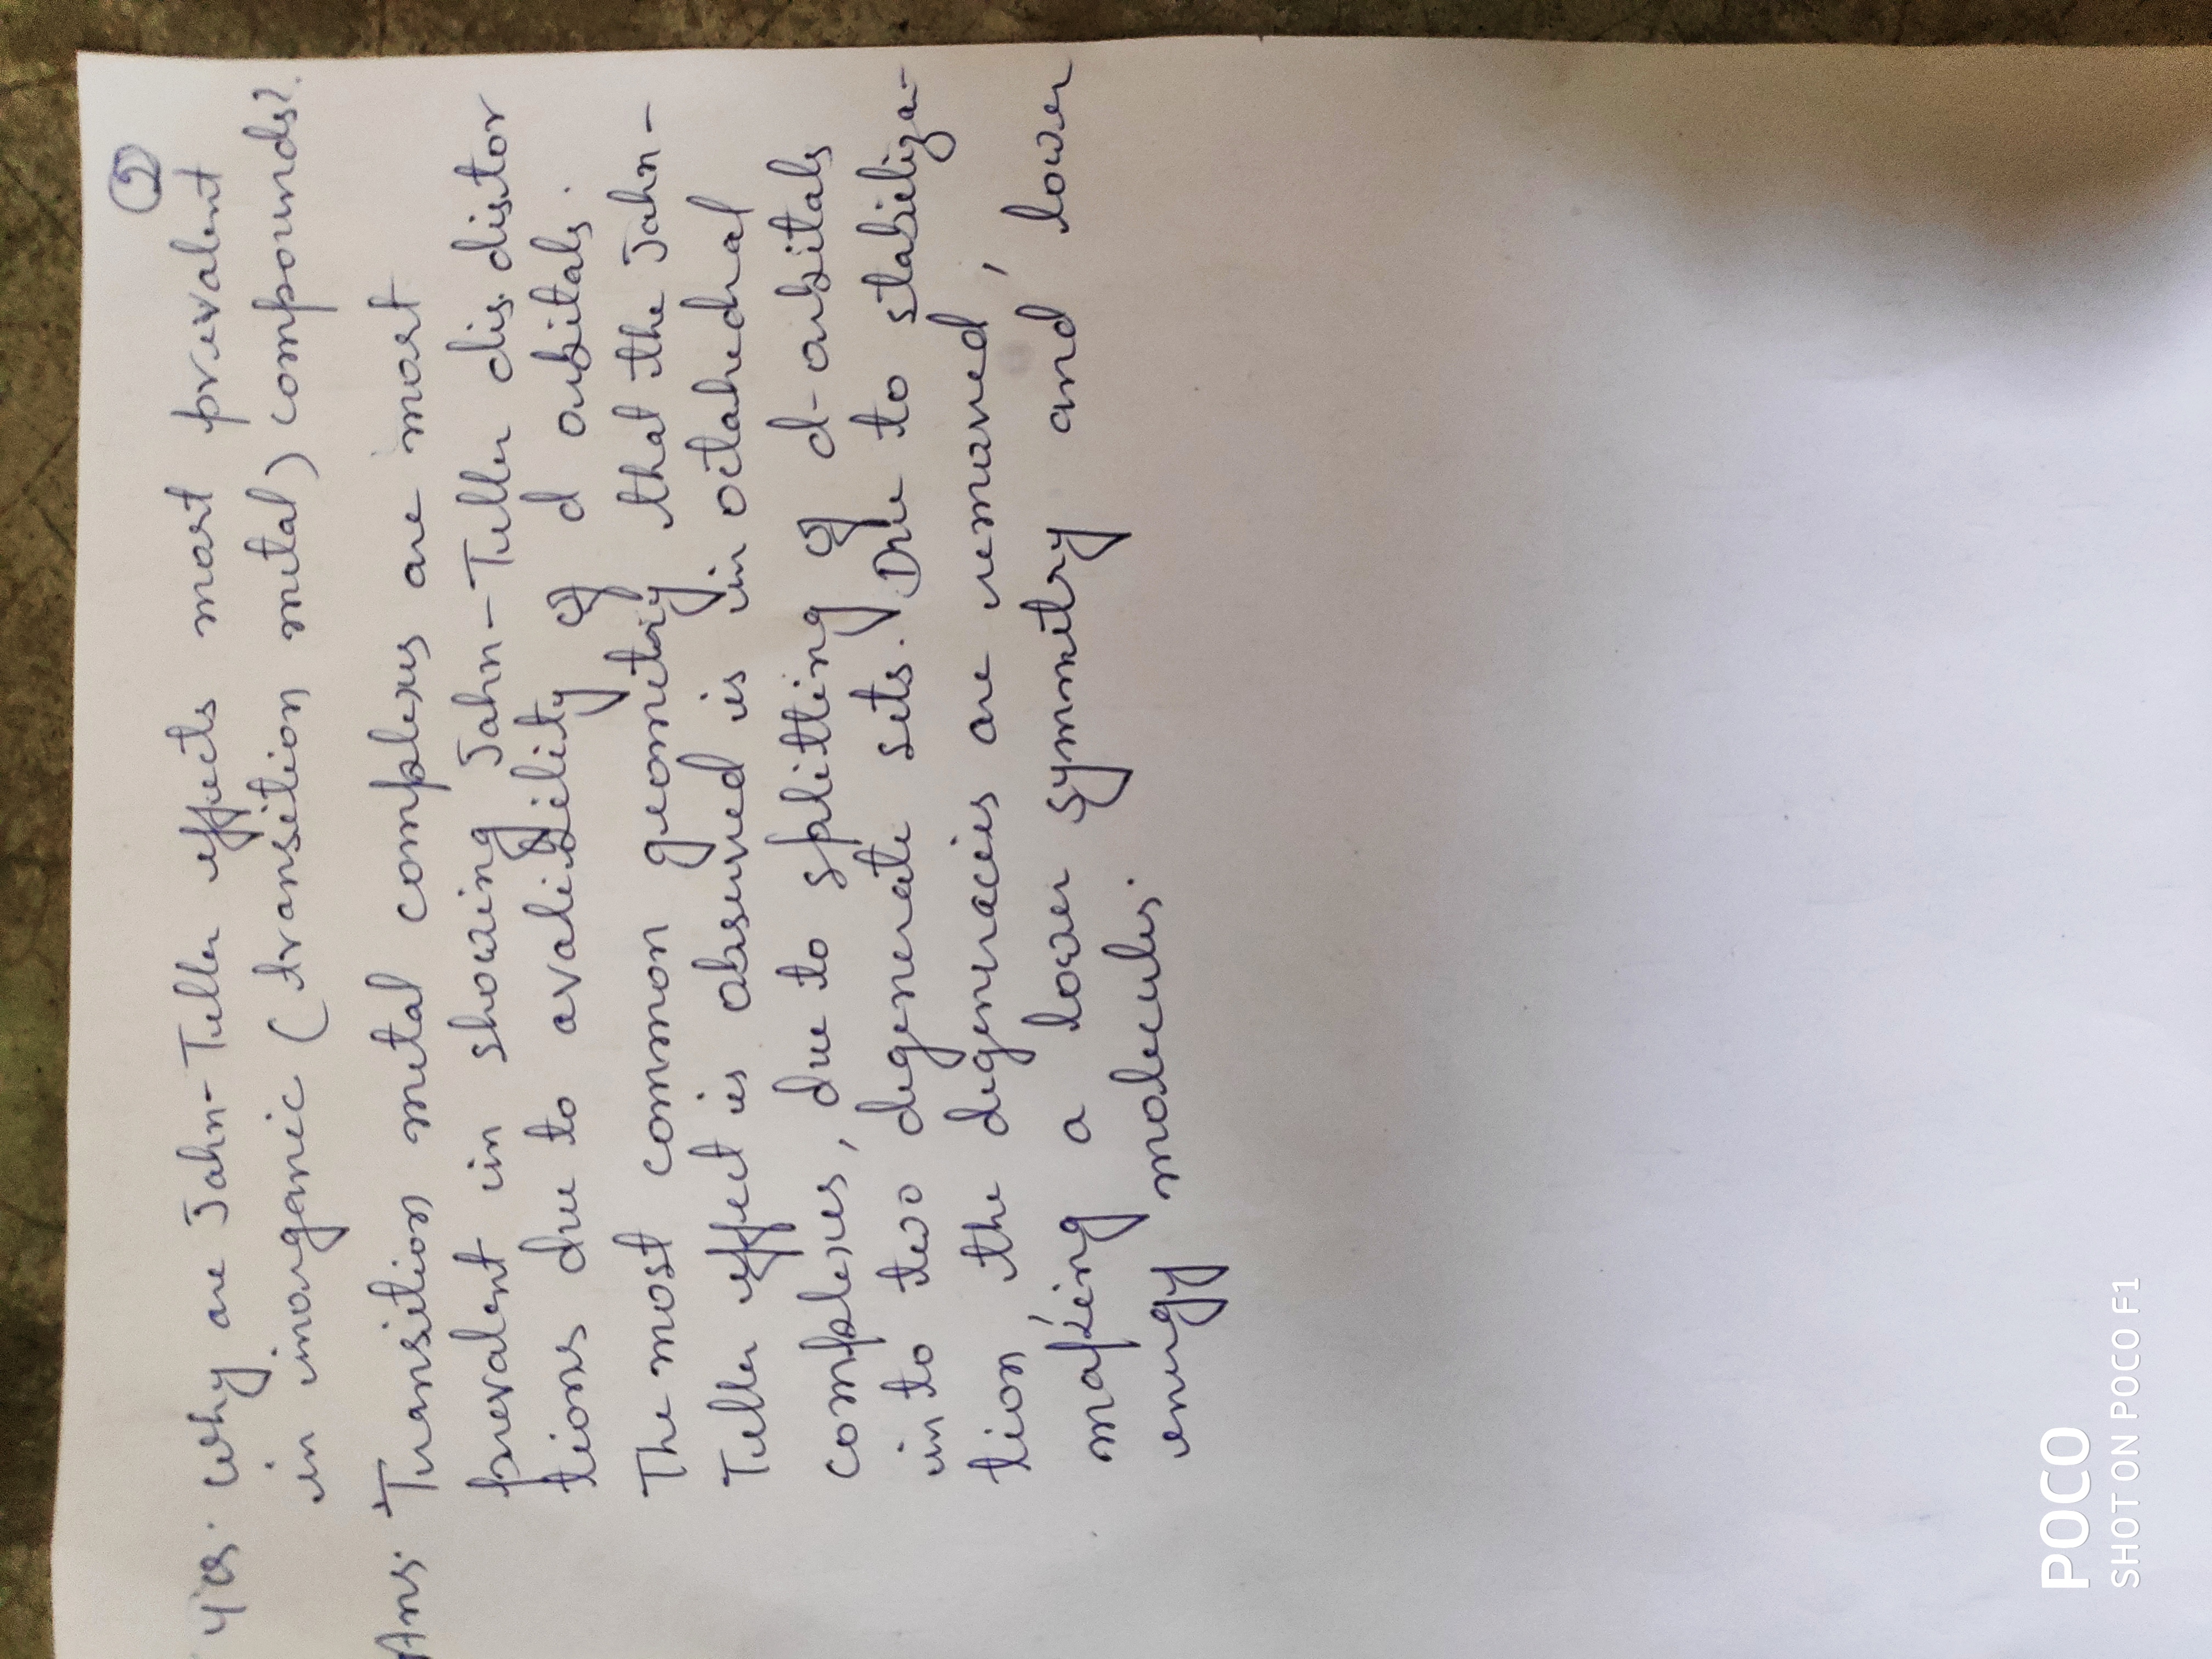 2
4) Q. Why are Jahn-Teller effects most prevalent
in inorganic (transition metal) compounds?.
Ans. Transition metal complexes are most
prevalent in showing Jahn-Teller dis distor
tions due to avalibility of d orbitals.
The most common geometriy that the Jahn-
Teller effect is observed is in octahedral
complexes, due to splitting of d-orbitals
in to two degenerate sets. Due to stabiliza-
tion the degeneracies are removed,
making a lower symmetry and, lower
energy molecules.
POCO
SHOT ON POCO F1